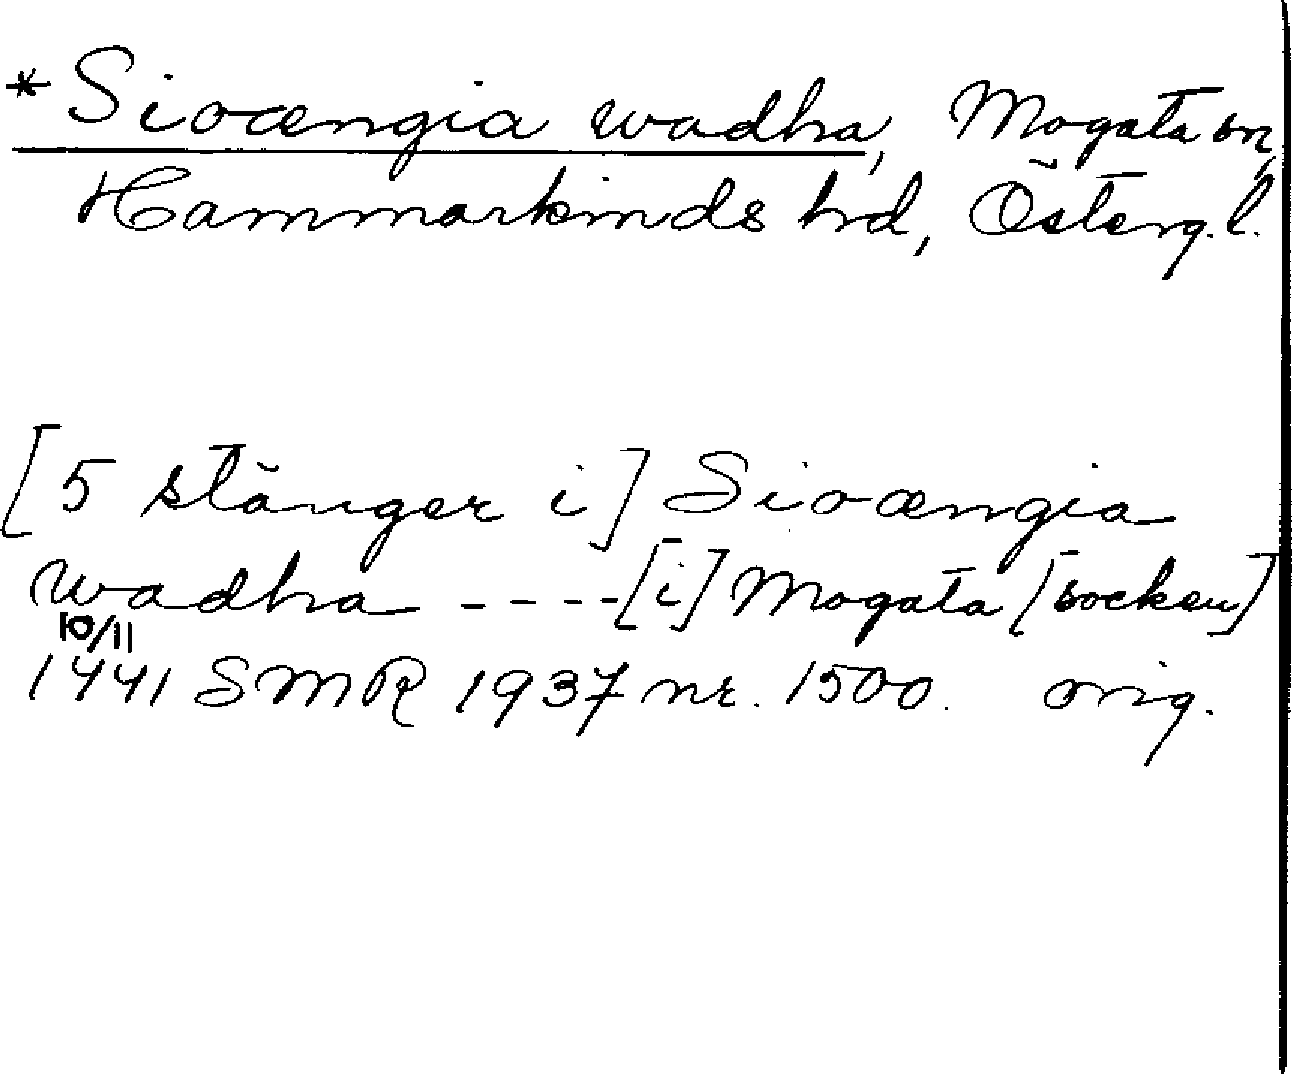 *Sioængia wadha, Mogata sn,
Hammarkinds hd, Österg.l.
[5 stänger i] Sioængia
wadha ----[i] Mogata [socken]
10/11
1441 SMR 1937 nr. 1500. orig.